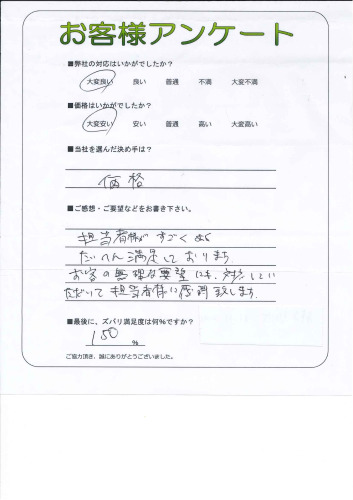 お客様アンケート
■弊社の対応はいかがでしたか？
大変良い 良い 普通 不満 大変不満
■価格はいかがでしたか？
大変安い 安い 普通 高い 大変高い
■当社を選んだ決め手は？
価格
■ご感想・ご要望などをお書き下さい。
担当者様がすごく良く
たいへん満足しております
お客の無理な要望にも、対応してい
ただいて担当者様に感謝致します。
■最後に、ズバリ満足度は何%ですか？
150 %
ご協力頂き、誠にありがとうございました。